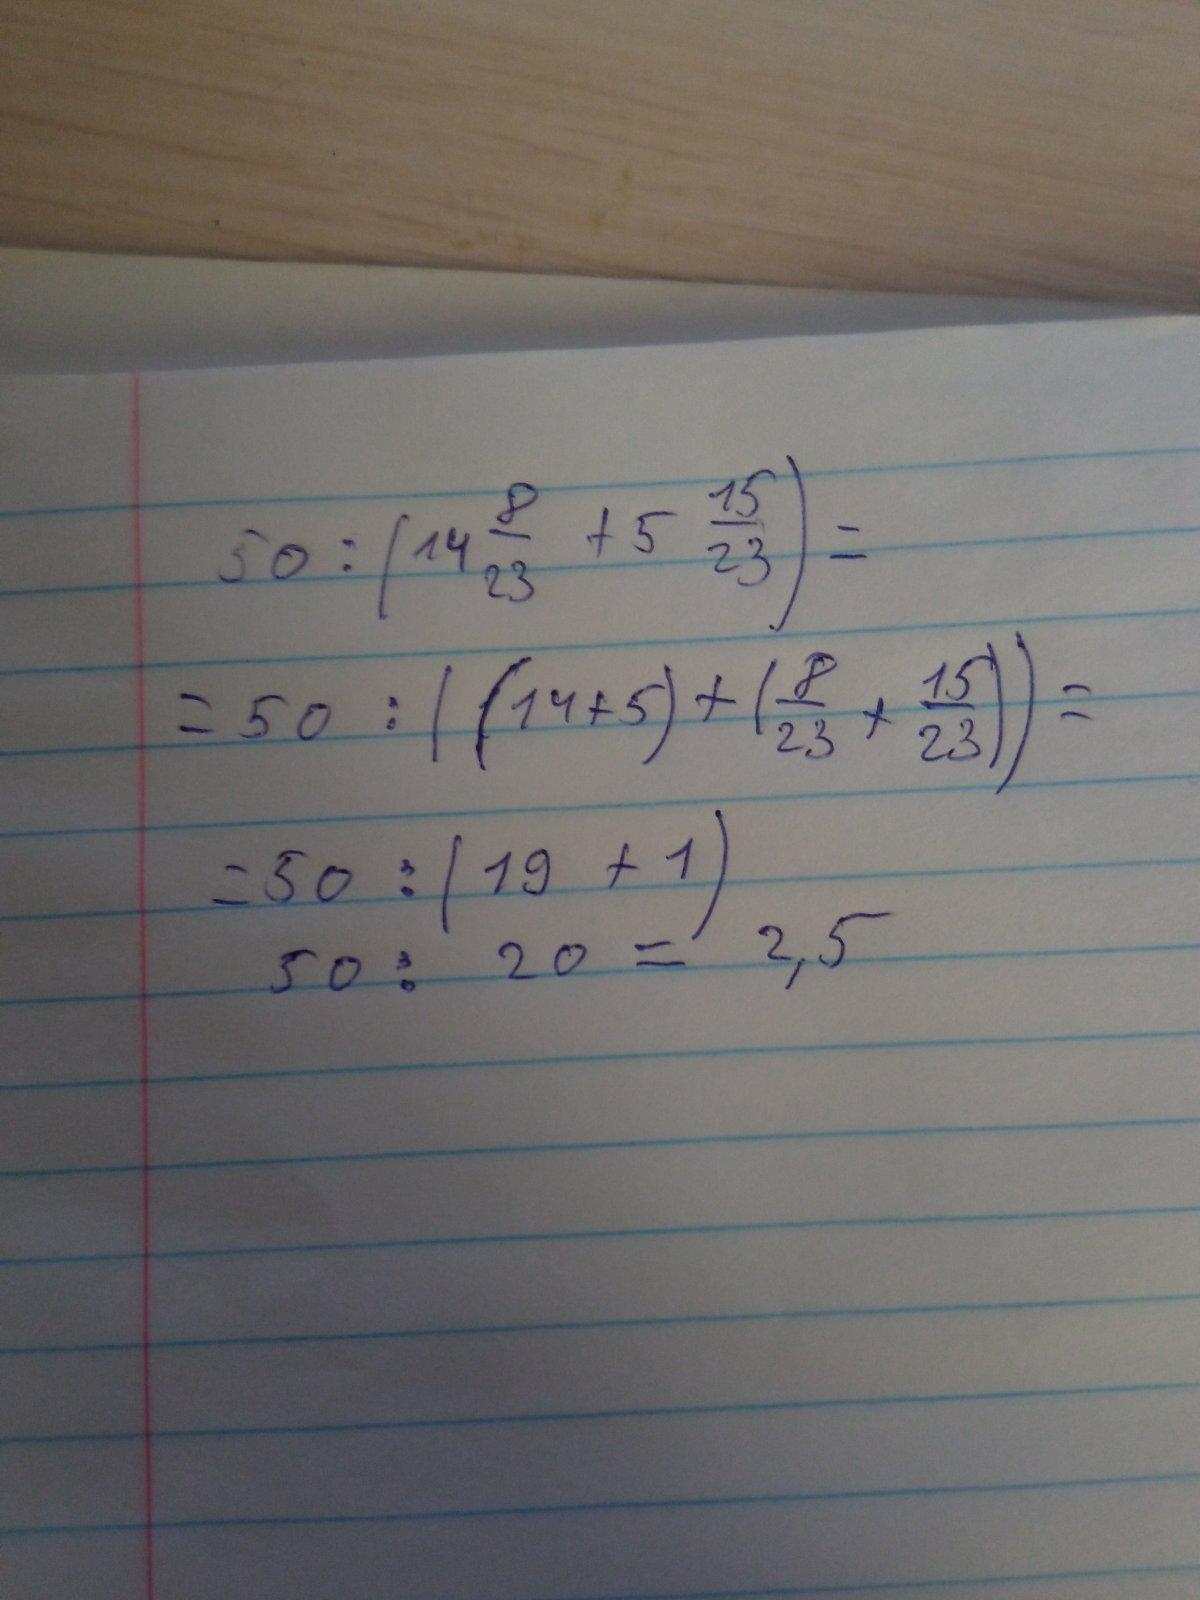 50 : (14 8/23 + 5 15/23) =
= 50 : ((14+5) + (8/23 + 15/23)) =
= 50 : (19 + 1)
50 : 20 = 2,5